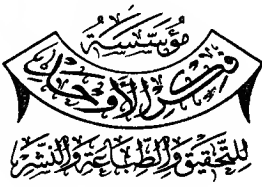 مُؤَسَّسَةُ
فِكْرِ الْأَوْحَدِ
لِلتَّحْقِيقِ وَالطِّبَاعَةِ وَالنَّشْرِ